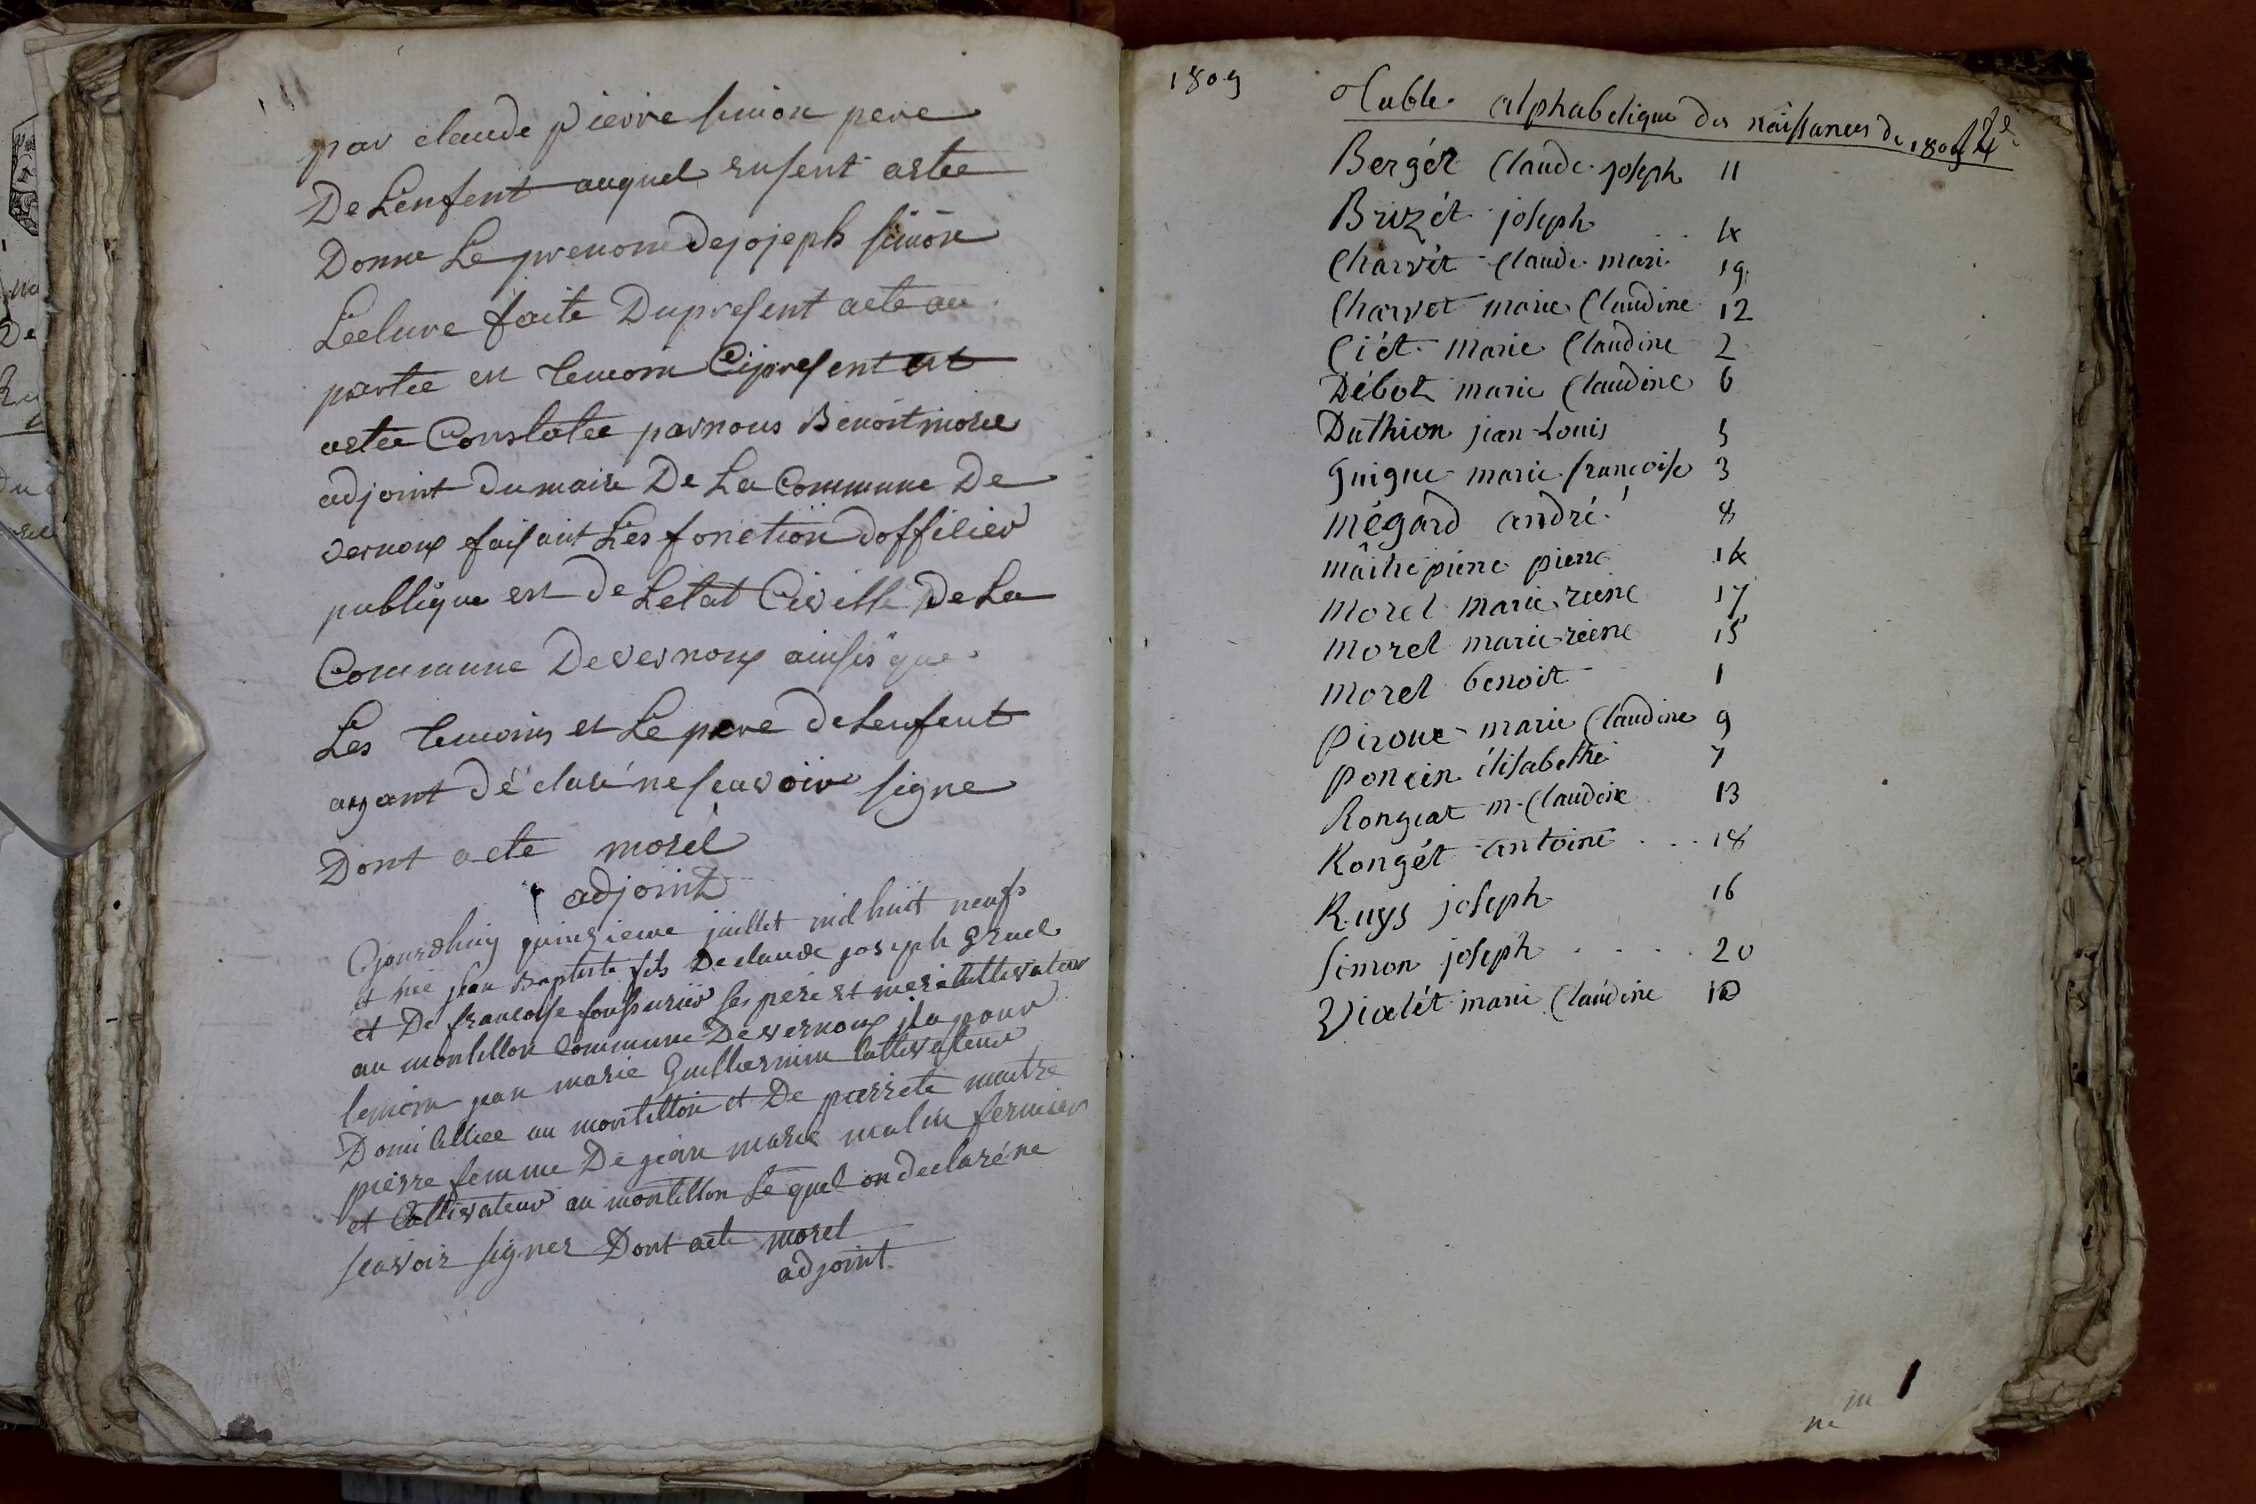 par claude pierre simon pere
De Lenfent auquel
Donne Le prenom de jojeph simon
Leclure faite Du present acte au
partee en temoin Cipresent est
astee Constatee par nous Benoit morel
adjoint du maire De La Commune De
vernoux faisant Les fonction doffilier
publique est De Letat Civille De La
Commune De vernoux ainsis que
Les temoins et Le pere de Lenfent
ayant déclaré ne scavoir signe
Dont acte morel
adjoint
quinzieme juillet mil huit neufs
et née jean Baptiste fils De claude joseph
et De francoise ses pere et mere Cultivateur
au montillon Commune De vernoux pour
temoin jean marie Guillermin Cultivateur
Domicilliee au montillon et De pierrete maitre
pierre femme De jean marie malin fermier
et Cultivateur au montillon Le quel on declaré ne
scavoir signer Dont acte morel
adjoint
1809
Table alphabetique des naissances de 1809
Bergér Claude joseph 11
Brizét joseph 4
Charvét Claude mari 19
Charvet marie Claudine 12
Ciét marie Claudine 2
Débot marie Claudine 6
Duthion jean Louis 5
Guigue marie francoise 3
mégard andré 8
maître pierre pierre 14
Morel marie reine 17
morel marie reine 15
morel benoit 1
piroue marie Claudine 9
poncin élisabethe 7
Rongeat m. Claudine 13
Rongét antoine 18
Ruys joseph 16
Simon joseph 20
Vialét marie Claudine 10
1